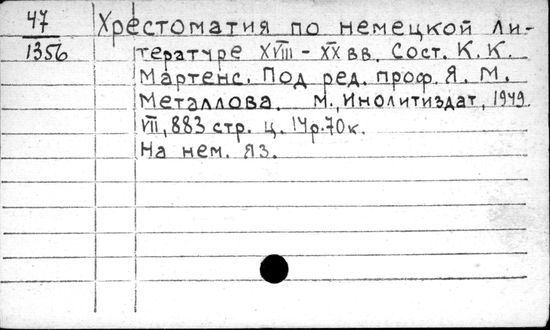 47
1356
Хрестоматия по немецкой ли-
тературе XVIII – XX вв. Сост. К. К.
Мартенс. Под ред. проф. Я. М.
Металлова. М., Инолитиздат, 1949.
VII, 883 стр. ц. 14р.70к.
На нем. яз.